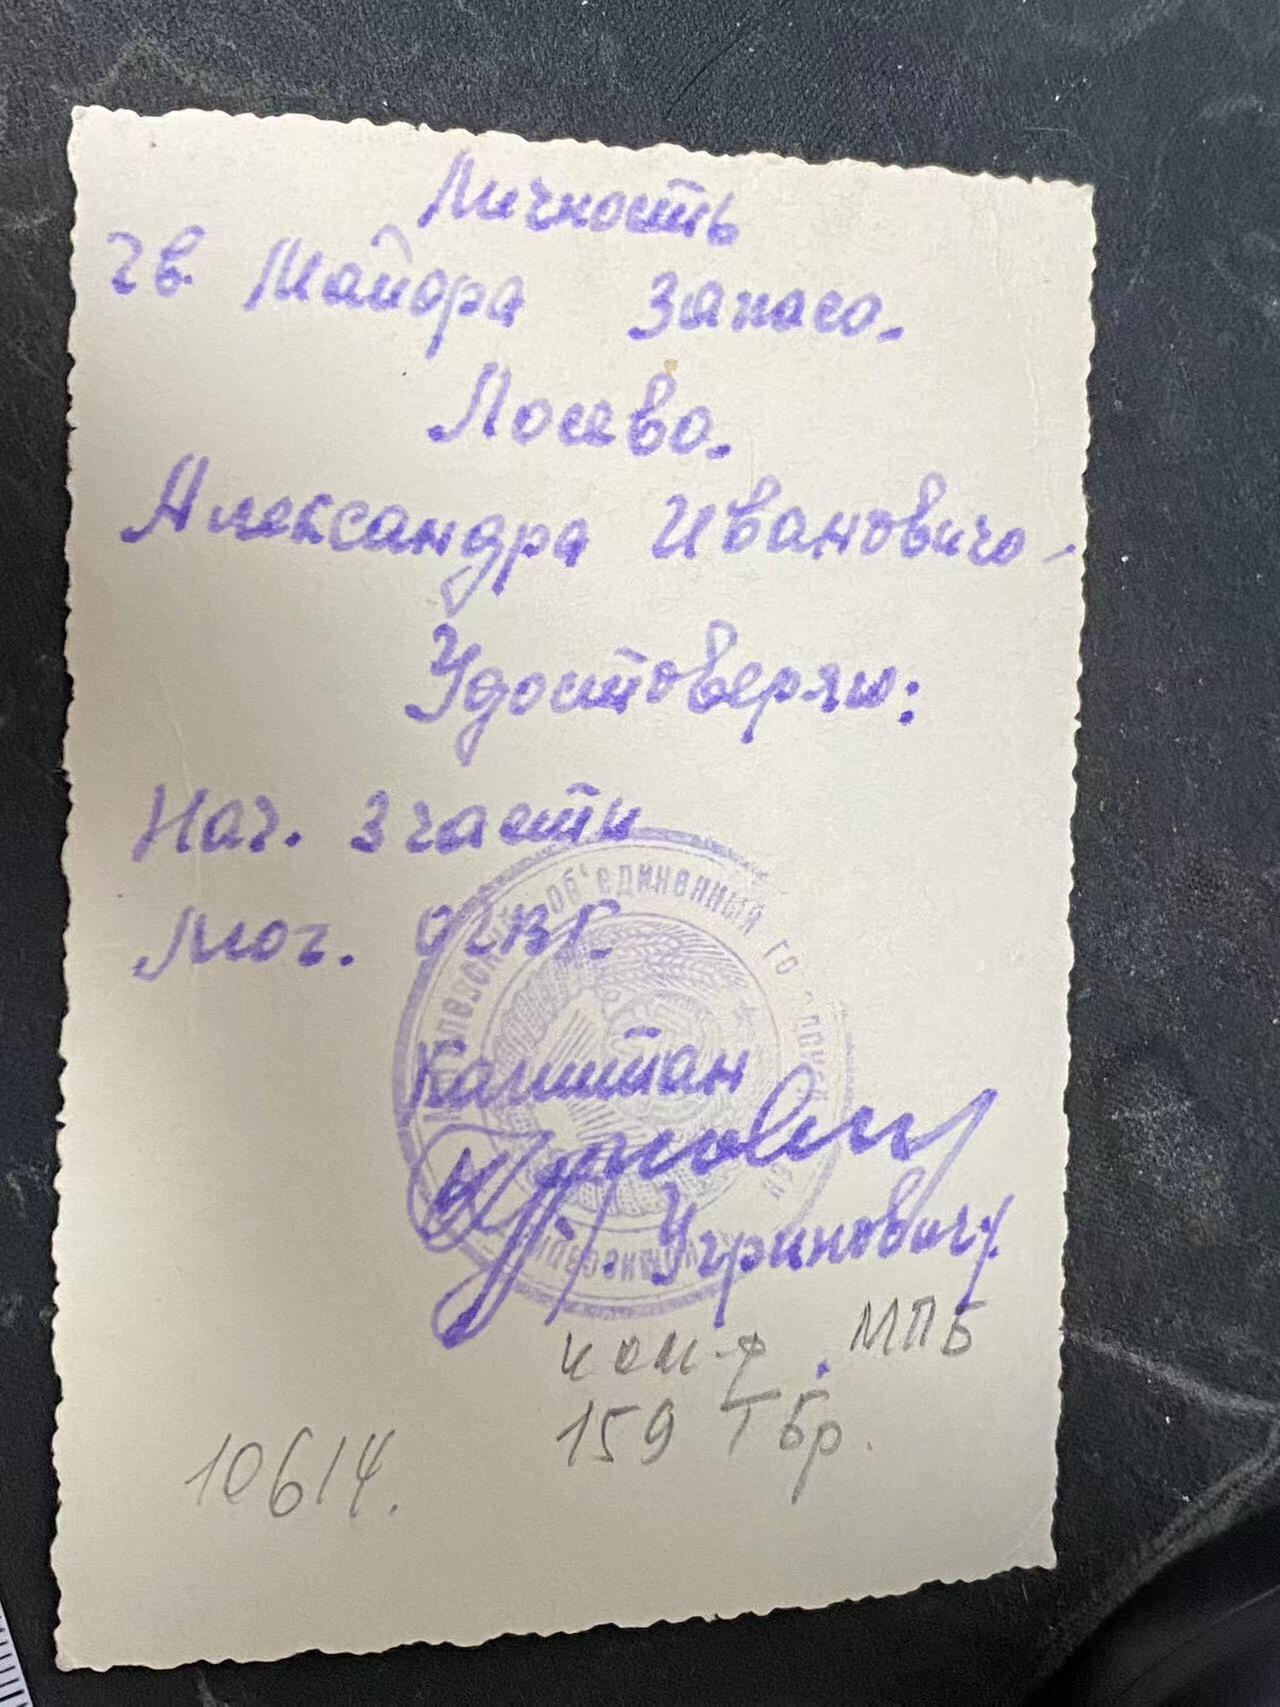 Личность
Гв. Майора запаса.
Лосева.
Александра Ивановича
Удостоверяю:
Нач. 3 части
Мог. ОГВК
об'единенный городской
Капитан
/Угринович/
ком-р МПБ
159 Тбр.
10614.